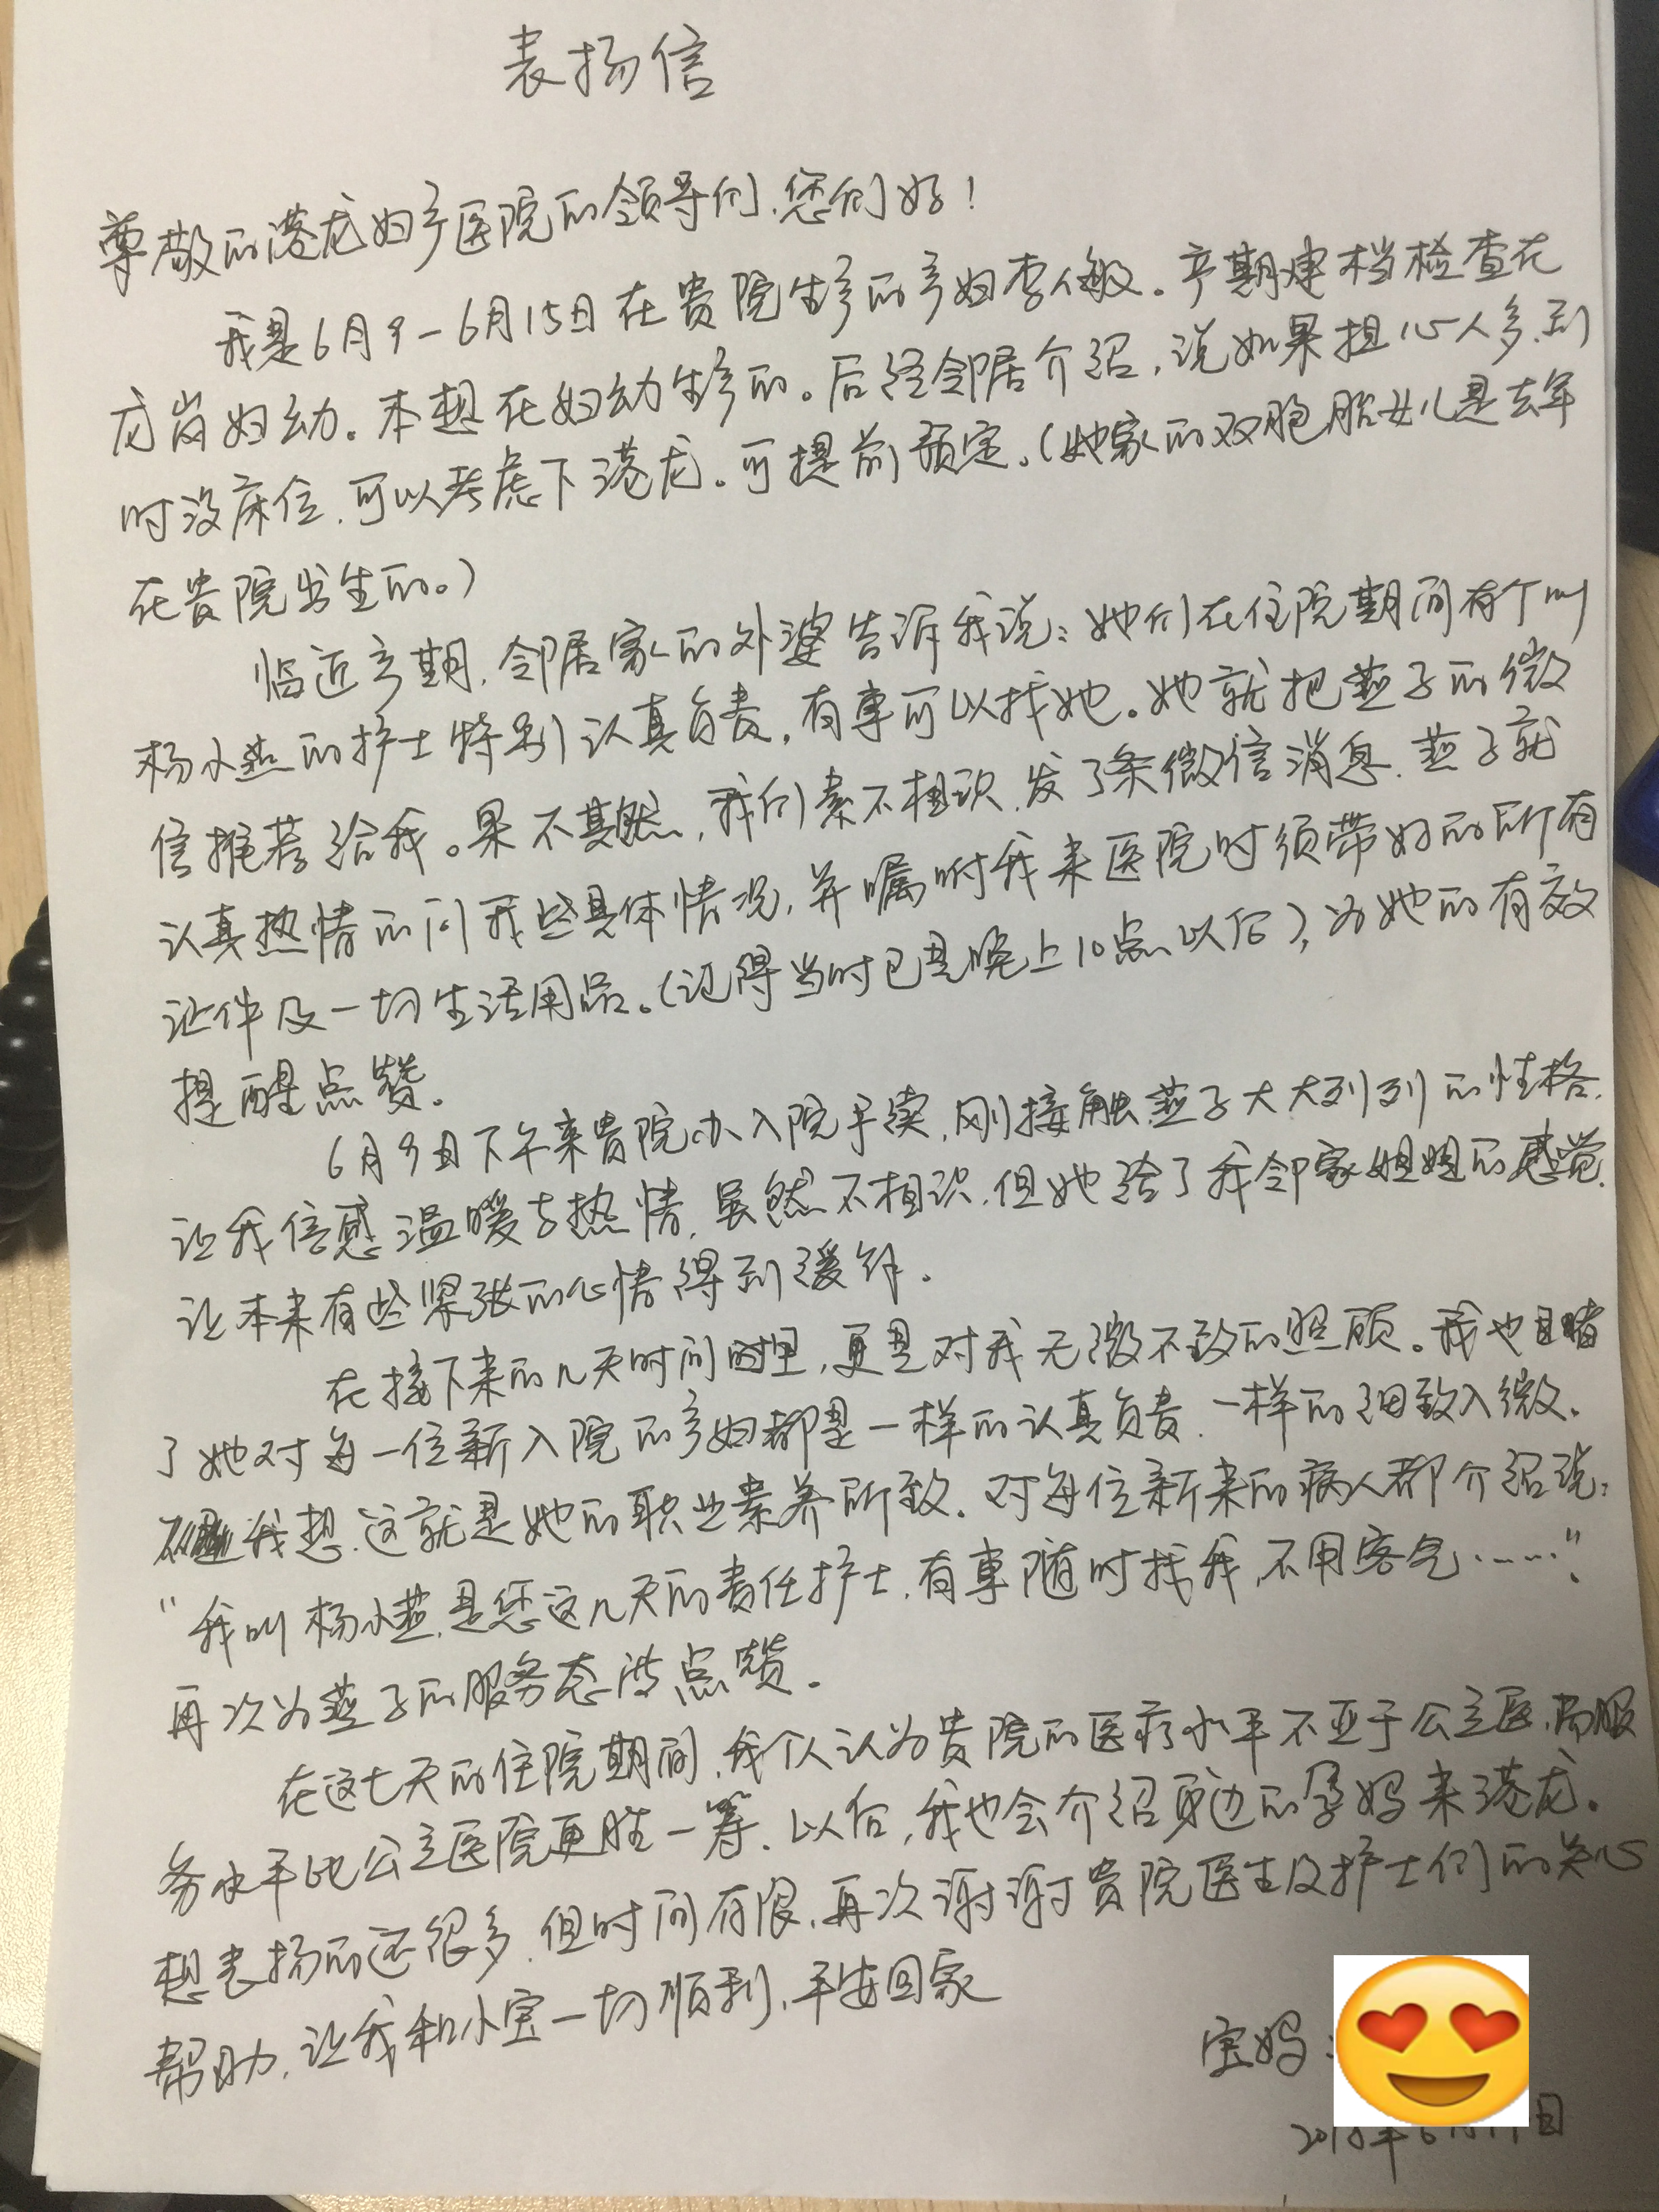 表扬信
尊敬的港龙妇产医院的领导们,您们好!
我是6月9-6月15日在贵院生产的产妇李敏。产期建档检查在
龙岗妇幼。本想在妇幼生产的。后经邻居介绍,说如果担心人多,到
时没床位,可以考虑下港龙。可提前预定。(她家的双胞胎女儿是去年
在贵院出生的。)
临近产期,邻居家的外婆告诉我说:她们在住院期间有个叫
杨小燕的护士特别认真负责,有事可以找她。她就把燕子的微
信推荐给我。果不其然,我们素不相识,发了条微信消息,燕子就
认真热情的问我些具体情况,并嘱咐我来医院时须带好的所有
证件及一切生活用品。(记得当时已是晚上10点以后),为她的有效
提醒点赞。
6月9日下午来贵院办入院手续,刚接触燕子大大列列的性格,
让我倍感温暖与热情,虽然不相识,但她给了我邻家姐姐的感觉,
让本来有些紧张的心情得到缓解。
在接下来的几天时间里,更是对我无微不致的照顾。我也目睹
了她对每一位新入院的产妇都是一样的认真负责,一样的细致入微。
我想,这就是她的职业素养所致。对每位新来的病人都介绍说:
“我叫杨小燕,是您这几天的责任护士,有事随时找我,不用客气……”。
再次为燕子的服务态度点赞。
在这七天的住院期间,我个人认为贵院的医疗水平不亚于公立医,而服
务水平比公立医院更胜一筹。以后,我也会介绍身边的孕妈来港龙。
想表扬的还很多,但时间有限,再次谢谢贵院医生及护士们的关心
帮助,让我和小宝一切顺利,平安回家
宝妈:
日